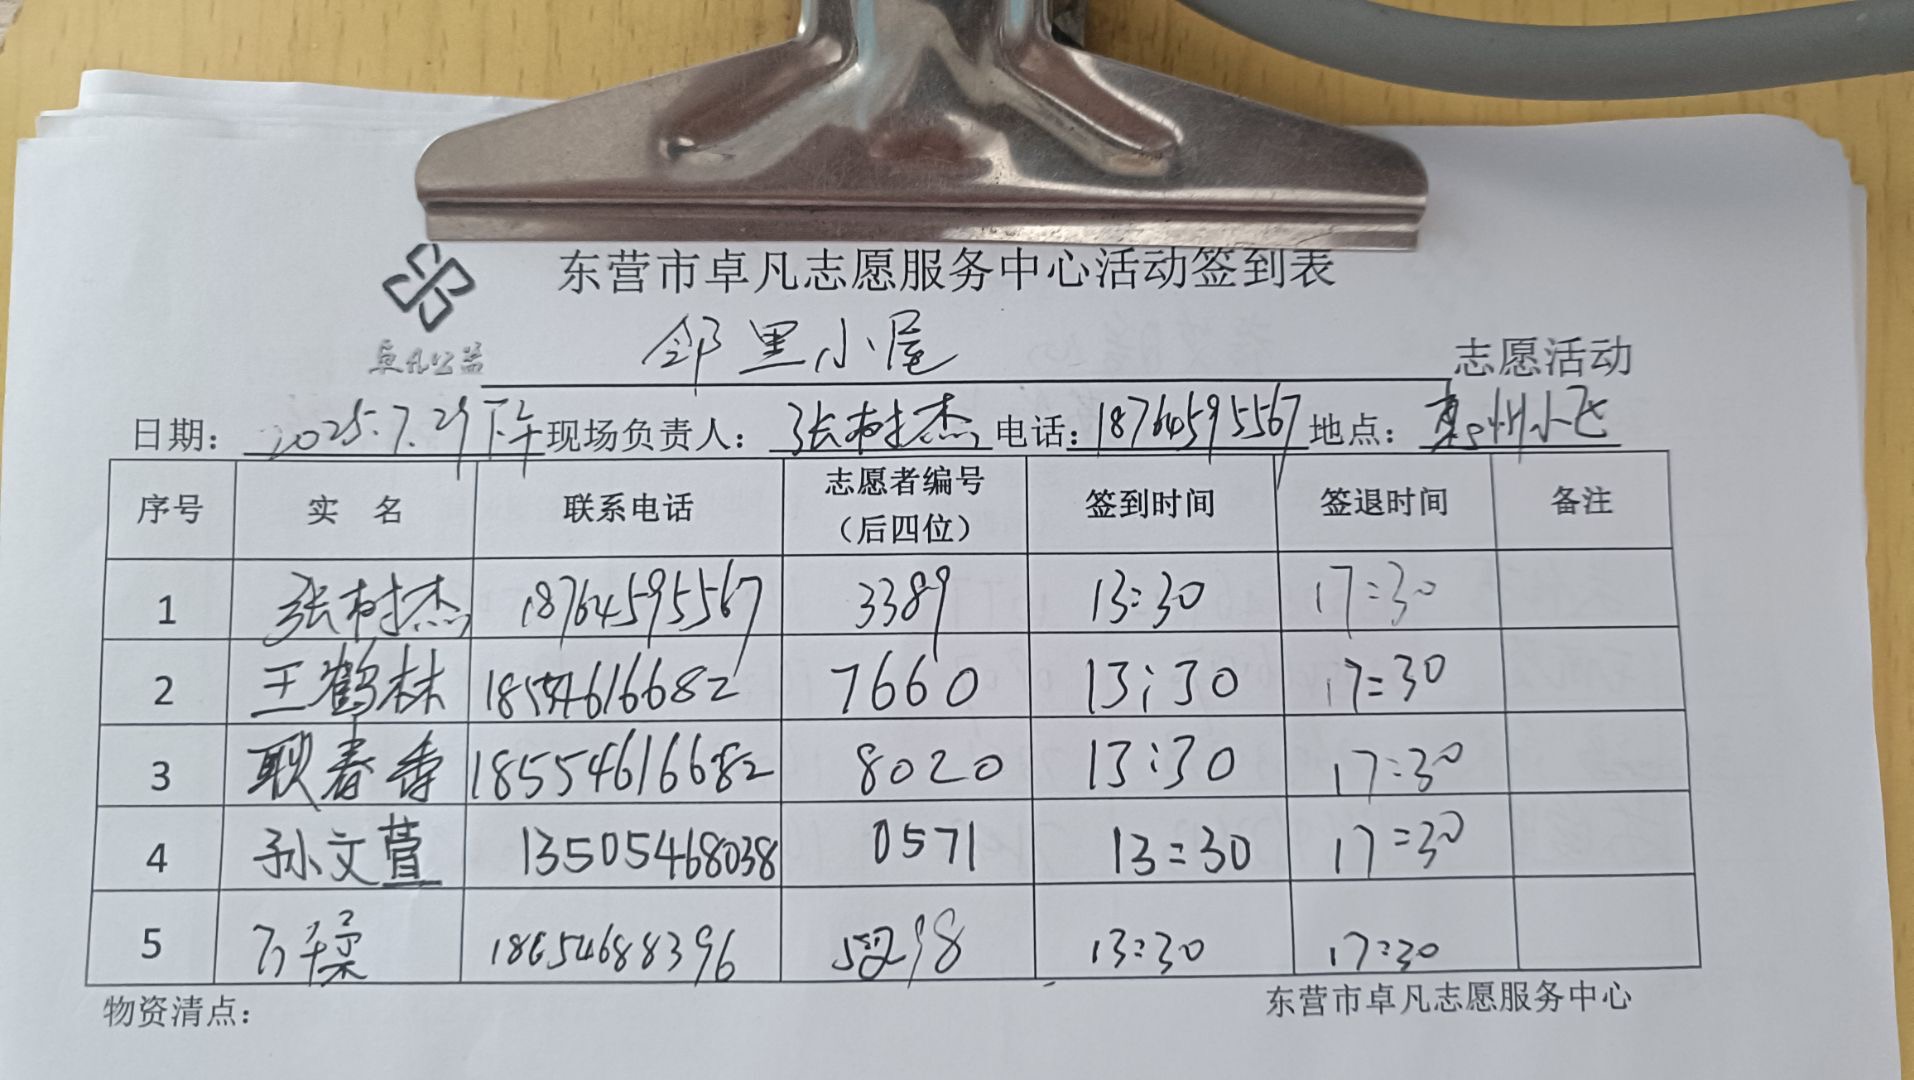 东营市卓凡志愿服务中心活动签到表
卓凡公益
邻里小屋 志愿活动
日期: 2025.7.29下午 现场负责人: 张树杰 电话: 18764595567 地点: 州小飞
序号 实 名 联系电话 志愿者编号(后四位) 签到时间 签退时间 备注
1 张树杰 18764595567 3389 13:30 17:30
2 王鹤林 18554616682 7660 13:30 17:30
3 耿春香 18554616682 8020 13:30 17:30
4 孙文萱 13505468038 0571 13:30 17:30
5 18654688396 13:30 17:30
物资清点: 东营市卓凡志愿服务中心